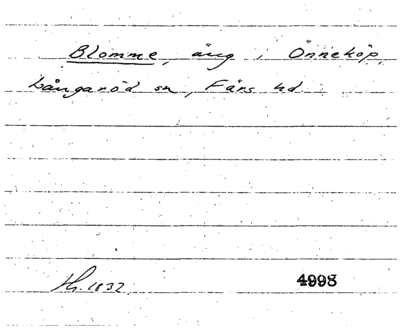 Blomme, äng i Önneköp,
Långaröd sn, Färs hd.
H. 1832. 4998